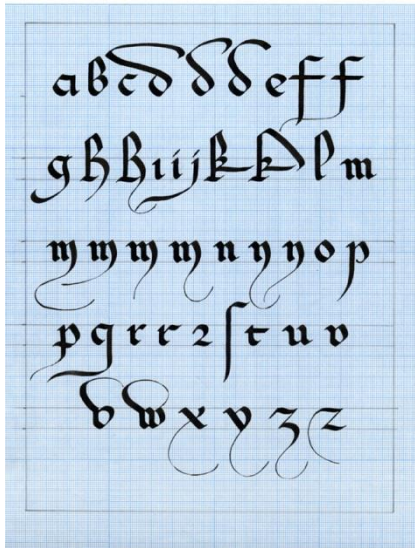 a b c d d d e f f
g h h i i j k k l m
m m m m n n n o p
p q r r 2 ſ t u v
v w x y z z